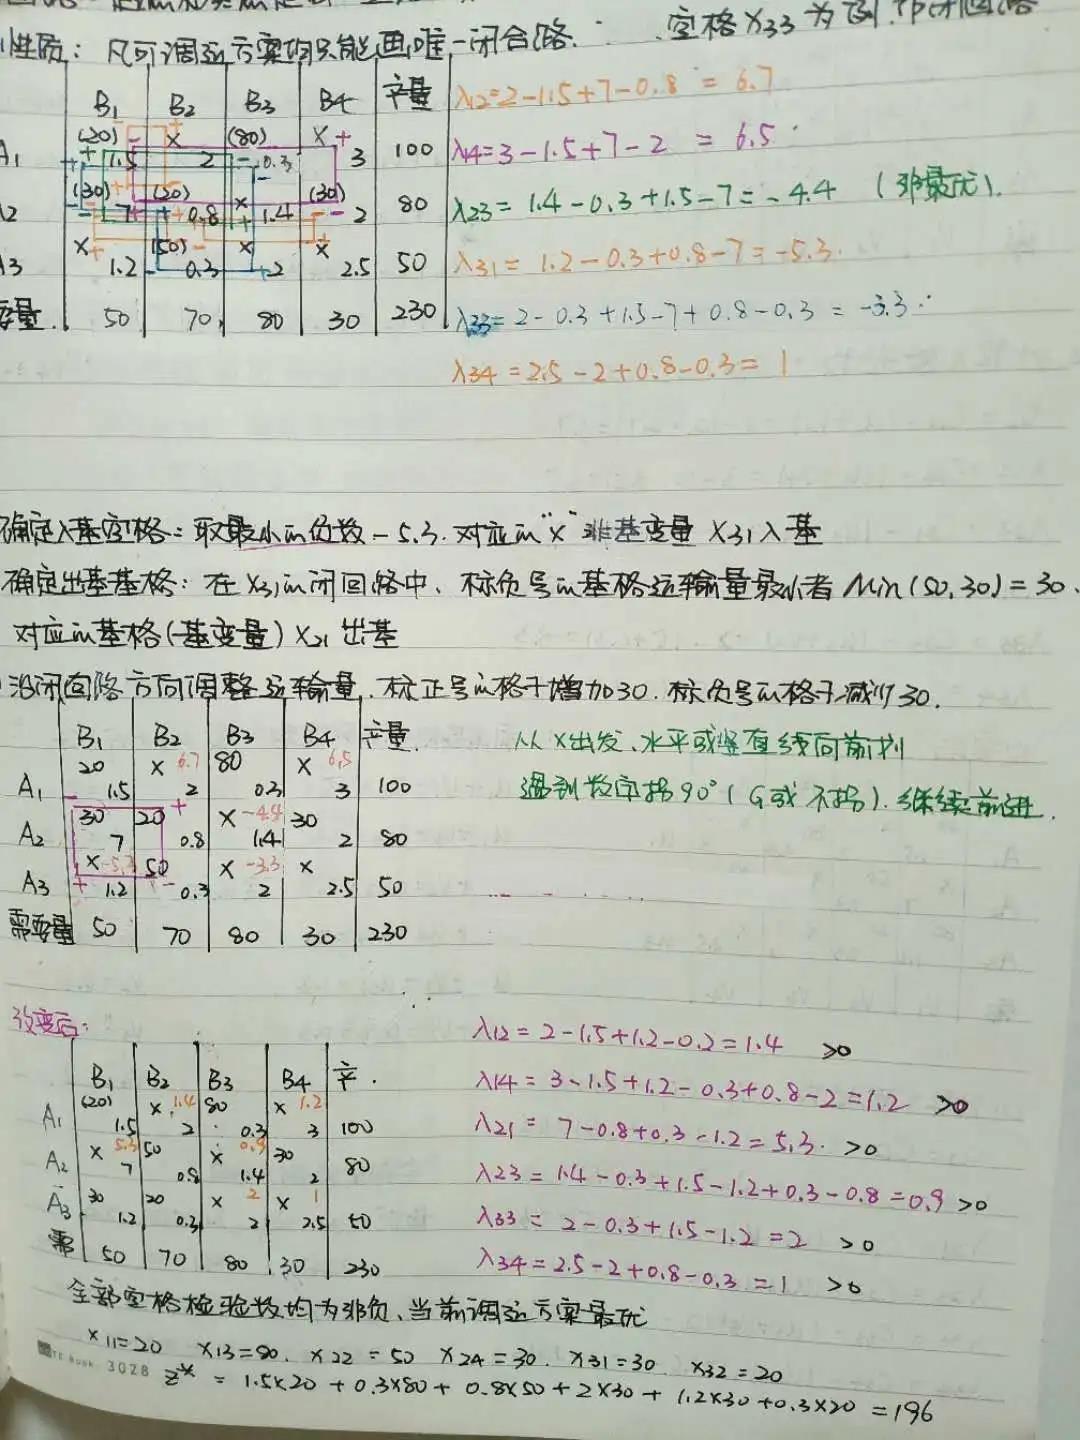 空格X33为例
性质：凡可调运方案均只能画唯一闭合路.
B1 B2 B3 B4 产量
(20) × (80) ×
A1 1.5 2 0.3 3 100
(30) (20) × (30)
A2 7 0.8 1.4 2 80
× (50) × ×
A3 1.2 0.3 2 2.5 50
需要量 50 70 80 30 230
λ12=2-1.5+7-0.8 = 6.7
λ14=3-1.5+7-2 = 6.5
λ23= 1.4-0.3+1.5-7=-4.4 (非最优).
λ31= 1.2-0.3+0.8-7=-5.3.
λ33=2-0.3+1.5-7+0.8-0.3 = -3.3
λ34=2.5-2+0.8-0.3= 1
确定入基空格：取最小的负数-5.3.对应的"×"非基变量 X31入基
确定出基基格：在X31的闭回路中、标负号的基格运输量最小者 Min(50,30)=30.
对应的基格(基变量) X21 出基
沿闭回路方向调整运输量.标正号的格子增加30.标负号的格子减少30.
B1 B2 B3 B4 产量
20 × 6.7 80 × 6.5
A1 - 1.5 2 0.3 3 100
30 20 + × -4.4 30
A2 7 0.8 1.4 2 80
× -5.3 50 × -3.3 ×
A3 + 1.2 - 0.3 2 2.5 50
需要量 50 70 80 30 230
从×出发、水平或竖直线向前划
遇到数字拐90°(G或不拐).继续前进.
改变后：
B1 B2 B3 B4 产.
(20) × 1.4 80 × 1.2
A1 1.5 2 0.3 3 100
× 5.3 50 × 0.9 30
A2 7 0.8 1.4 2 80
30 20 × 2 × 1
A3 1.2 0.3 2 2.5 50
需 50 70 80 30 230
λ12=2-1.5+1.2-0.2=1.4 >0
λ14= 3-1.5+1.2-0.3+0.8-2=1.2 >0
λ21= 7-0.8+0.3-1.2=5.3. >0
λ23= 1.4-0.3+1.5-1.2+0.3-0.8=0.9 >0
λ33= 2-0.3+1.5-1.2=2 >0
λ34=2.5-2+0.8-0.3=1 >0
全部空格检验数均为非负、当前调运方案最优
X11=20 X13=80. X22=50 X24=30. X31=30 X32=20
3028 Z* = 1.5×20+0.3×80+0.8×50+2×30+1.2×30+0.3×20 =196